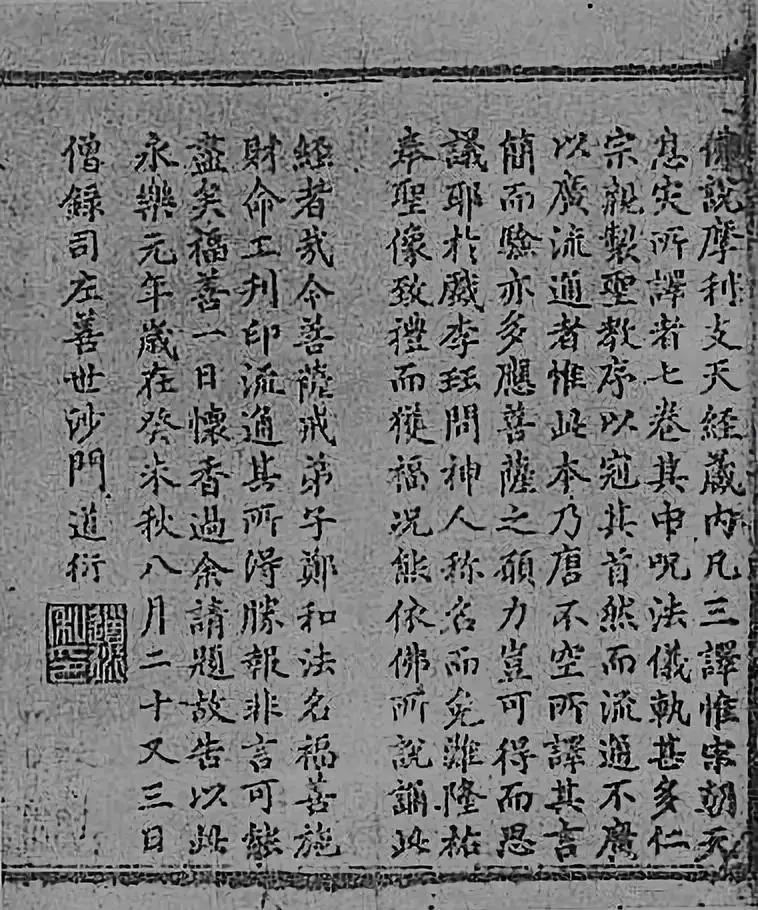 佛說摩利支天經藏內凡三譯惟宋朝天
息災所譯者七卷其中呪法儀軌甚多仁
宗親製聖教序以冠其首然而流通不廣
以廣流通者惟此本乃唐不空所譯其言
簡而驗亦多應菩薩之願力豈可得而思
議耶於戲李珏問神人稱名而免難隆祐
奉聖像致禮而獲福况能依佛所說誦此
經者㦲今菩薩戒弟子鄭和法名福善施
財命工刋印流通其所得勝報非言可能
盡矣福善一日懷香過余請題故告以此
永樂元年歲在癸未秋八月二十又三日
僧錄司左善世沙門道衍